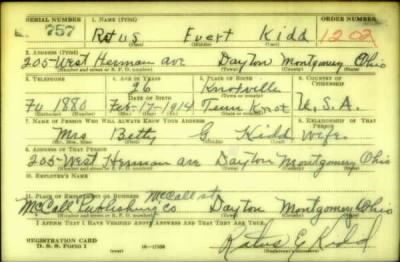 SERIAL NUMBER 1. NAME (Print) ORDER NUMBER
757 Ratus Evert Kidd 1202
(First) (Middle) (Last)
2. ADDRESS (Print)
205-West Herman ave Dayton Montgomery Ohio
(Number and street or R. F. D. number) (Town) (County) (State)
3. TELEPHONE 4. AGE IN YEARS 5. PLACE OF BIRTH 6. COUNTRY OF CITIZENSHIP
26 Knoxville
(Town or county)
Fu 1880 Feb-17-1914 Tenn Knox U.S.A.
7. NAME OF PERSON WHO WILL ALWAYS KNOW YOUR ADDRESS 8. RELATIONSHIP OF THAT PERSON
Mrs Betty G Kidd Wife.
(Mr., Mrs., Miss) (First) (Middle) (Last)
9. ADDRESS OF THAT PERSON
205-West Herman ave Dayton Montgomery Ohio
(Number and street or R. F. D. number) (Town) (County) (State)
10. EMPLOYER'S NAME
11. PLACE OF EMPLOYMENT OR BUSINESS McCall st
McCall Publishing Co Dayton Montgomery Ohio
(Number and street or R. F. D. number) (Town) (County) (State)
I AFFIRM THAT I HAVE VERIFIED ABOVE ANSWERS AND THAT THEY ARE TRUE.
REGISTRATION CARD
D. S. S. FORM 1 Ratus E Kidd